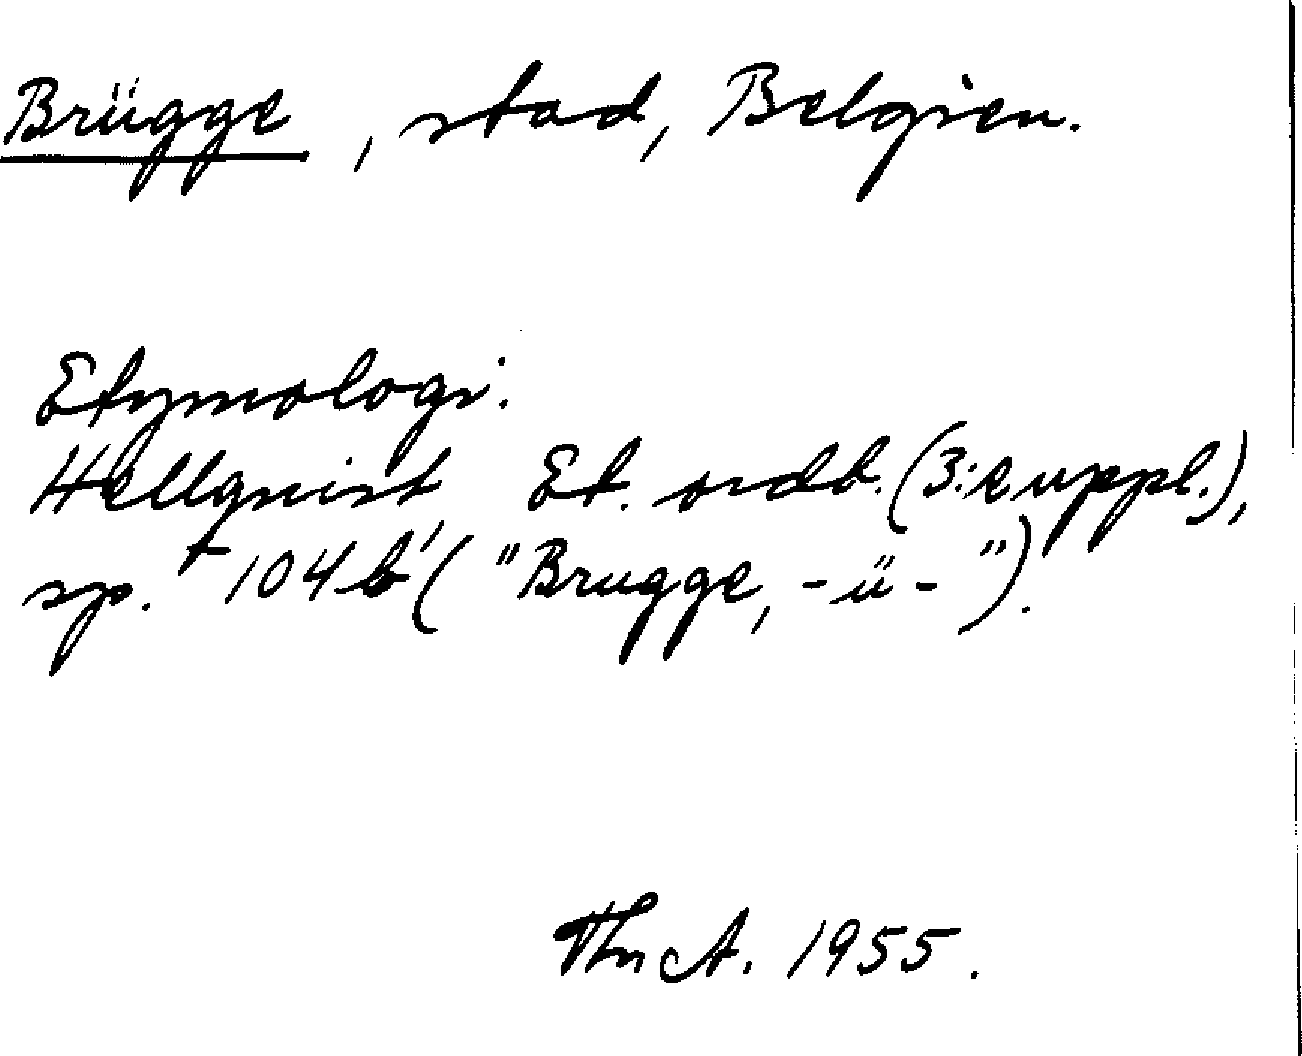 Brügge, stad, Belgien.
Etymologi:
Hellquist, Et. ordb. (3:e uppl.),
sp. 104 b ("Brugge, -ü-").
1955.